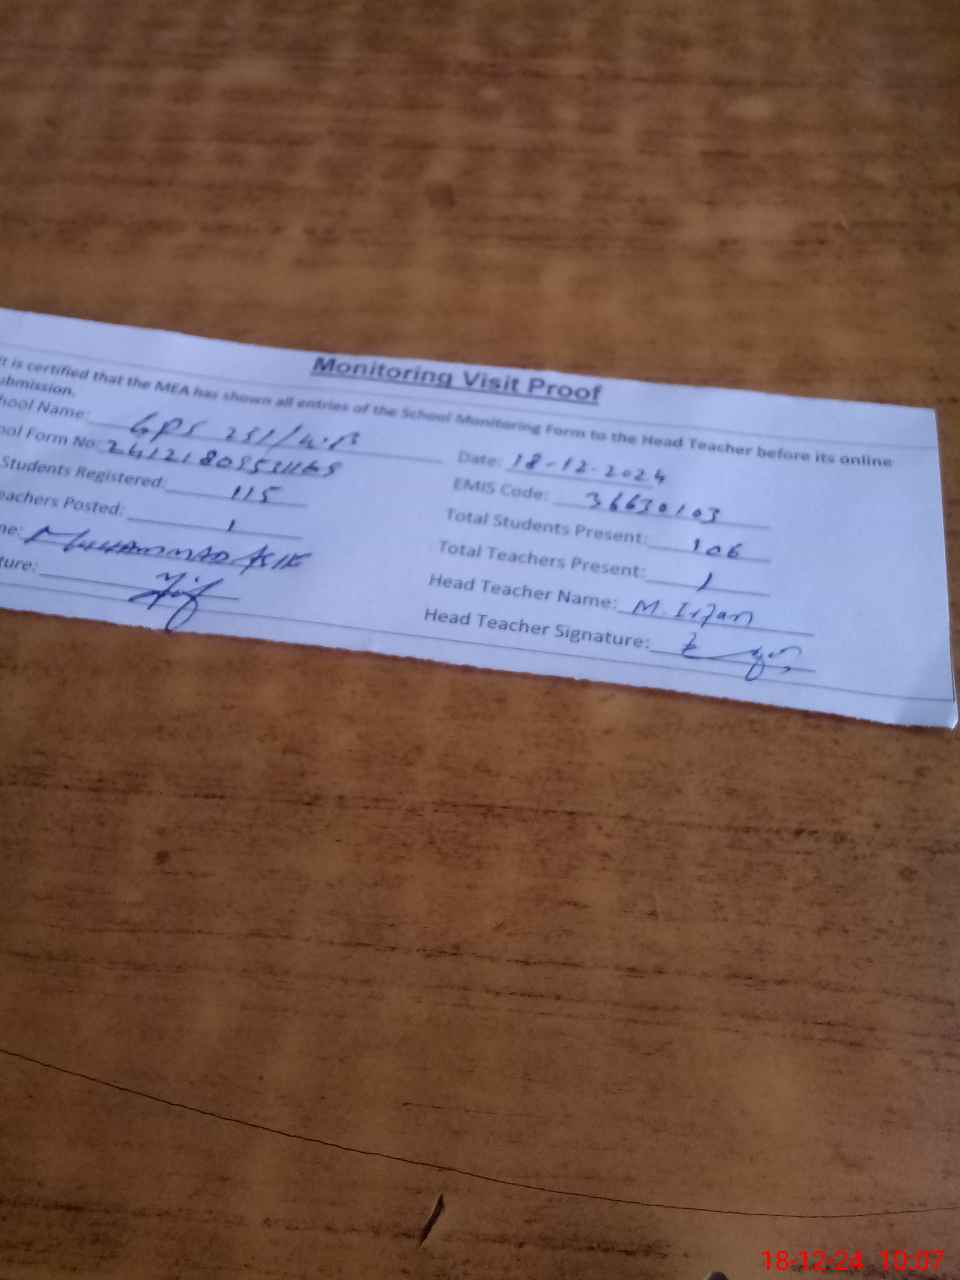 Monitoring Visit Proof
t is certified that the MEA has shown all entries of the School Monitoring Form to the Head Teacher before its online
ubmission.
hool Name: GPS 251/W.B
Date: 18-12-2024
ool Form No:
EMIS Code: 36630103
Students Registered: 115
Total Students Present: 106
eachers Posted: 1
Total Teachers Present: 1
me: MUHAMMAD ASIF
Head Teacher Name: M. Irfan
ture:
Head Teacher Signature:
18-12-24 10:07